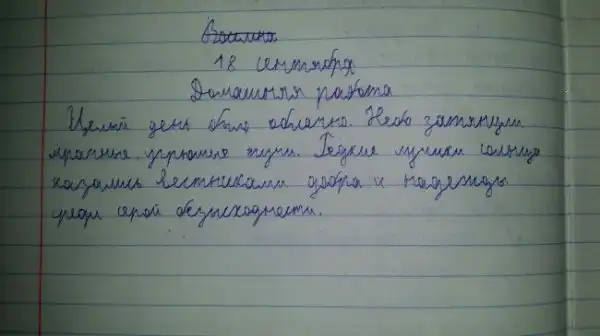 18 сентября
Домашняя работа
Целый день было облачно. Небо затянули
мрачные угрюмые тучи. Редкие лучики солнца
казались вестниками добра и надежды
среди серой безысходности.